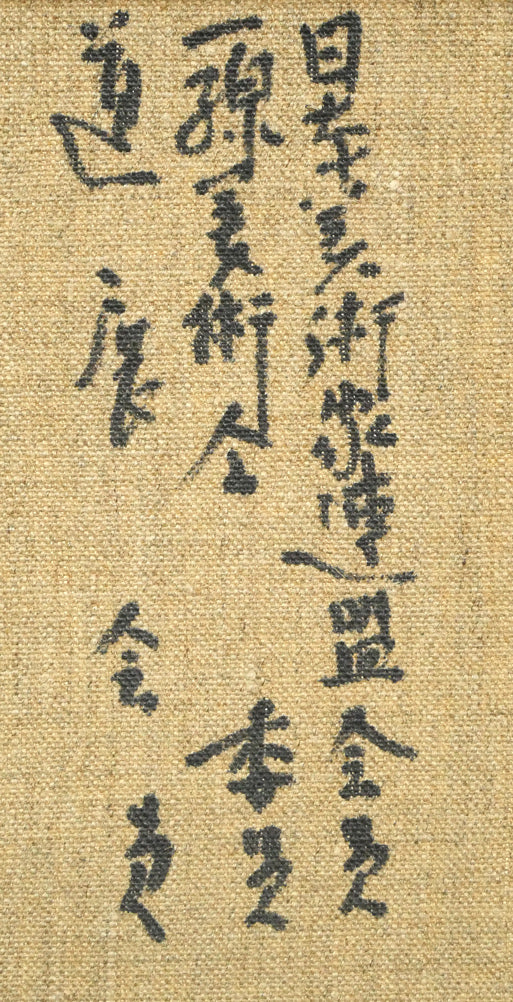 日本美術家連盟会員
一線美術会　委員
道展　会員